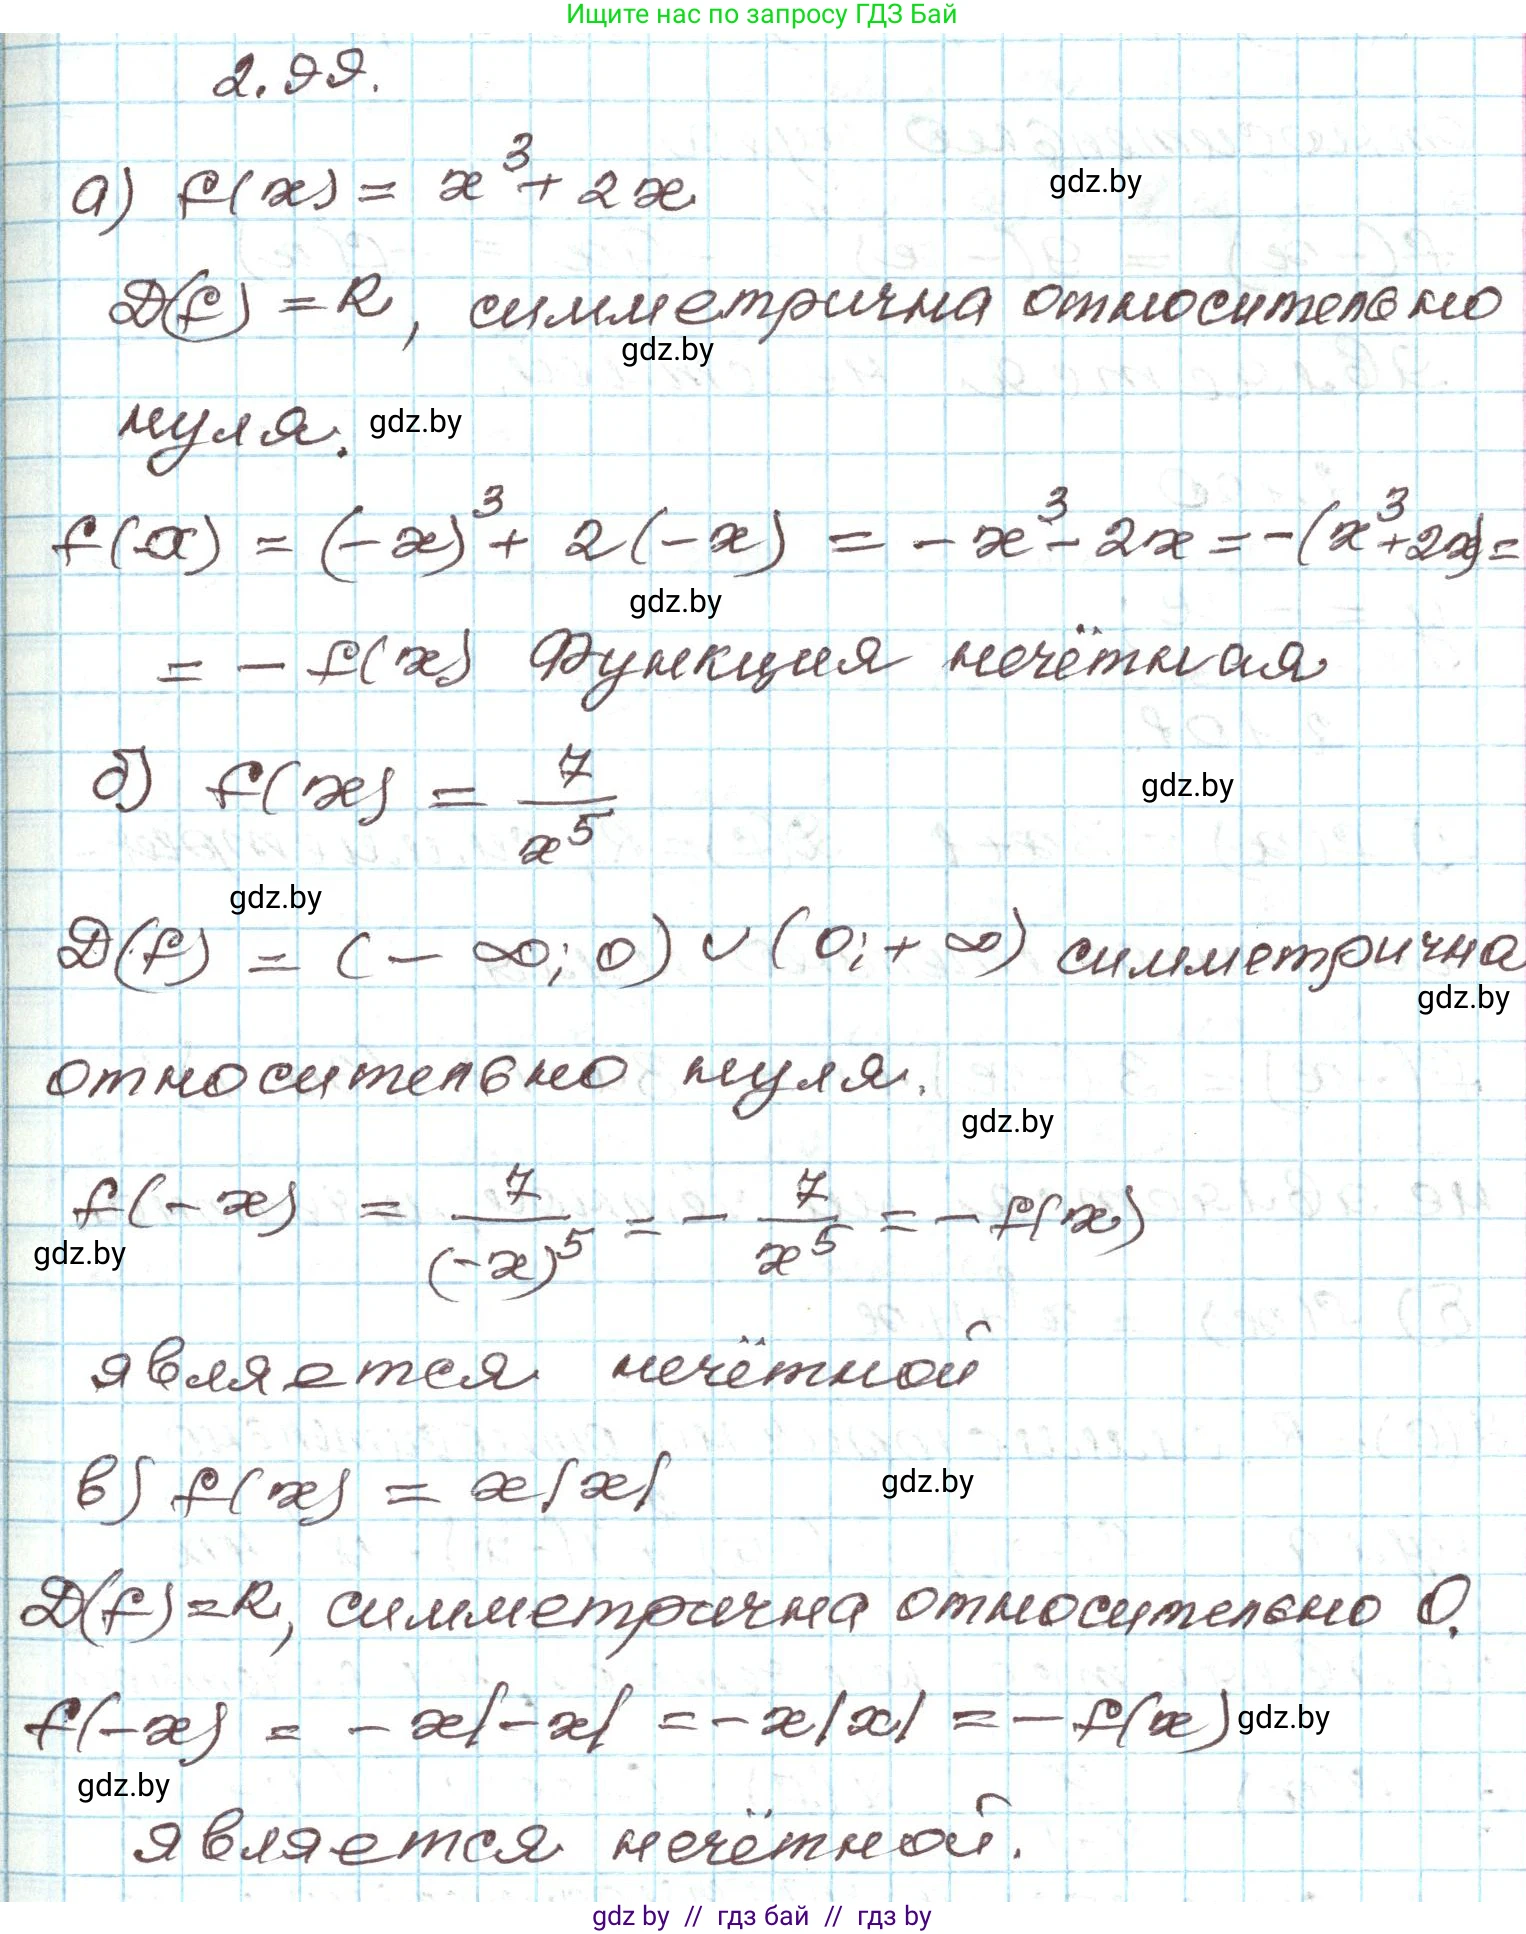 Ищите нас по запросу ГДЗ Бай
2.99.
а) f(x) = x³ + 2x
gdz.by
D(f) = R, симметрична относительно
gdz.by
нуля. gdz.by
f(-x) = (-x)³ + 2(-x) = -x³ - 2x = -(x³+2x) =
gdz.by
= - f(x) Функция нечётная
б) f(x) = 7/x⁵
gdz.by
gdz.by
D(f) = (-∞; 0) ∪ (0; +∞) симметрична
gdz.by
относительно нуля.
gdz.by
f(-x) = 7/(-x)⁵ = - 7/x⁵ = - f(x)
gdz.by
является нечётной
в) f(x) = x|x|
gdz.by
D(f) = R, симметрична относительно 0.
f(-x) = -x|-x| = -x|x| = - f(x) gdz.by
gdz.by
является нечётной.
gdz by // гдз бай // гдз by